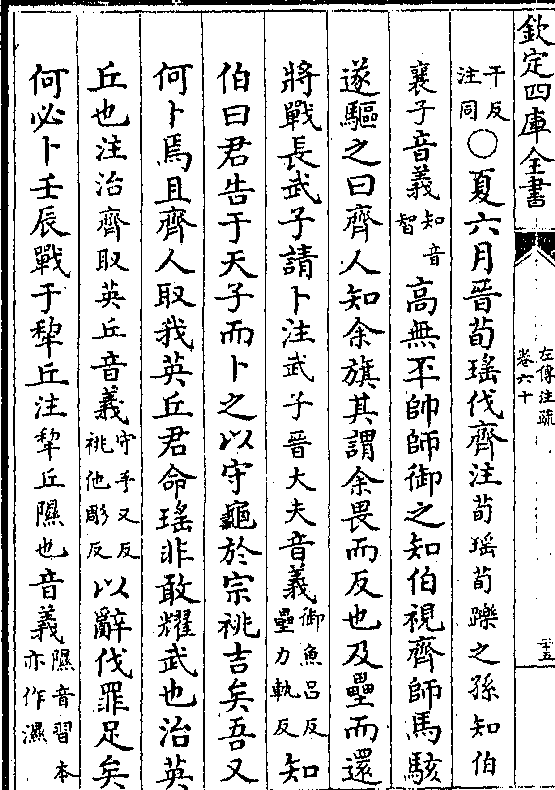 欽定四庫全書
左傳注疏
卷六十
二十五
干反
注同
○夏六月晉荀瑤伐齊注荀瑤荀躒之孫知伯
襄子音義知音
智
高無㔻帥師御之知伯視齊師馬駭
遂驅之曰齊人知余旗其謂余畏而反也及壘而還
將戰長武子請卜注武子晉大夫音義御魚呂反
壘力軌反
知
伯曰君告于天子而卜之以守龜於宗祧吉矣吾又
何卜焉且齊人取我英丘君命瑤非敢耀武也治英
丘也注治齊取英丘音義守手又反
祧他彫反
以辭伐罪足矣
何必卜壬辰戰于犂丘注犂丘隰也音義隰音習本
亦作濕